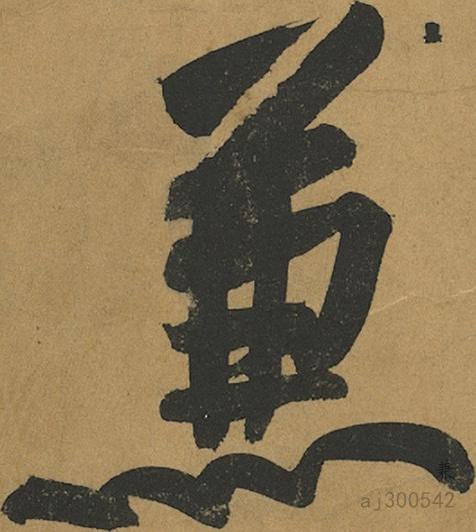 兼
aj300542